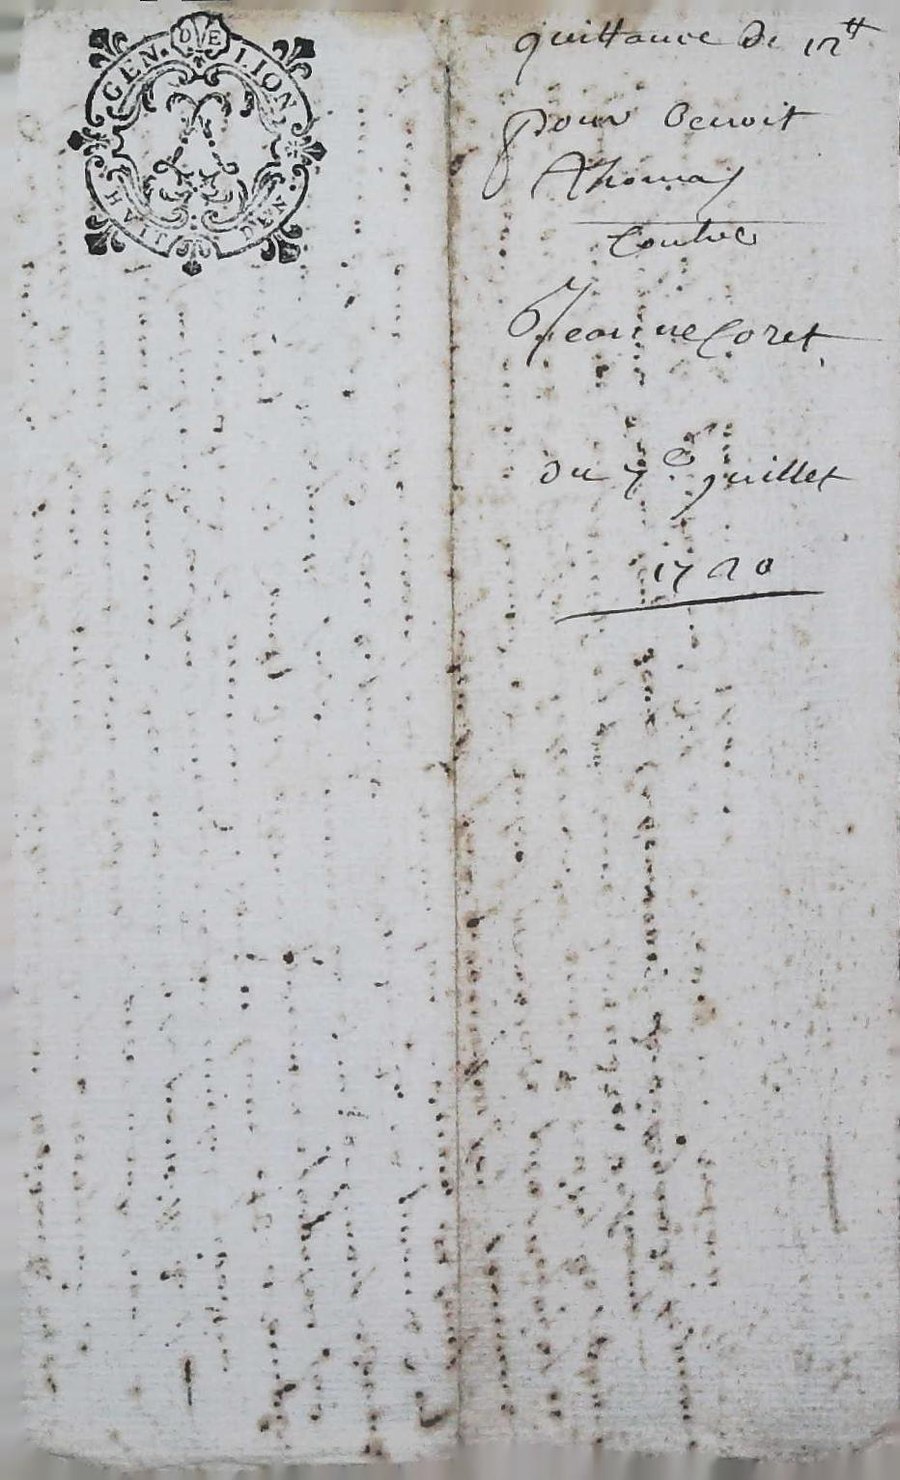 GEN. DE LION
HUIT DEN.
quittance de 12tt
pour benoit
Thomas
Contre
Jeanne Coret
du 7e juillet
1720